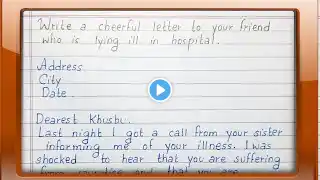 Write a cheerful letter to your friend
who is lying ill in hospital.
Address
City
Date.
Dearest Khushu.
Last night I got a call from your sister
informing me of your illness. I was
shocked to hear that you are suffering
from and that you are